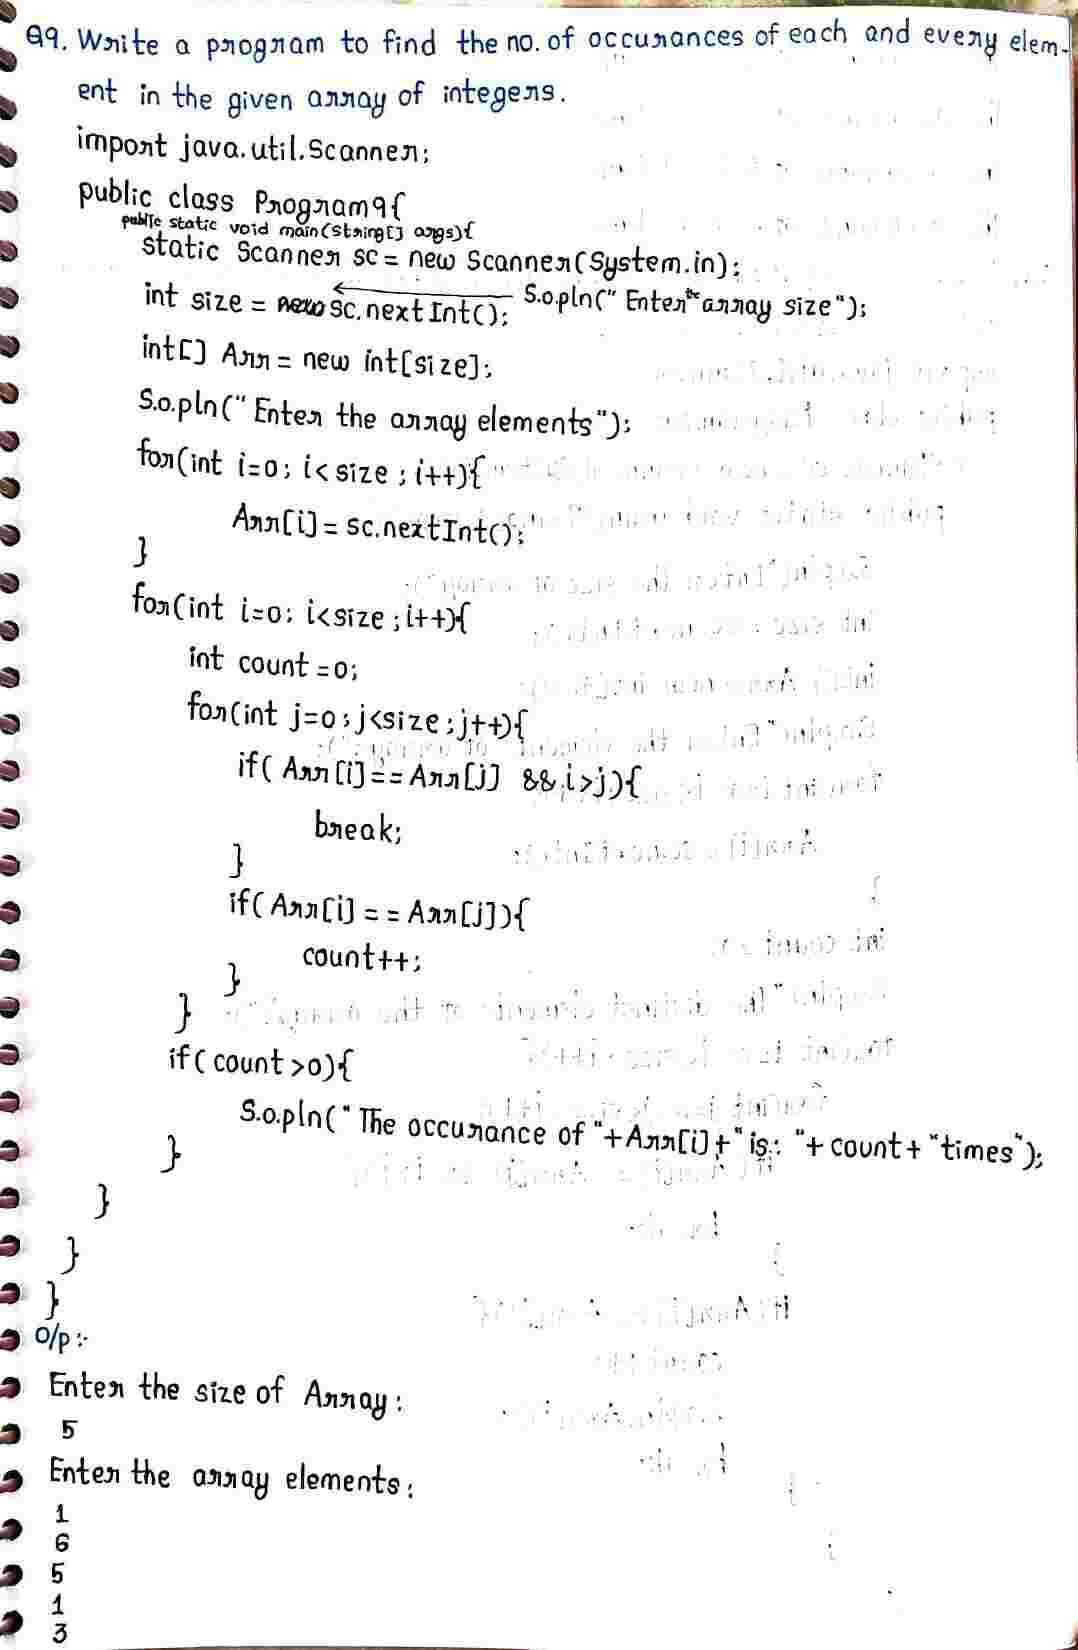 Q9. Write a program to find the no. of occurances of each and every elem-
ent in the given array of integers.
import java.util.Scanner;
public class Program9{
public static void main(String[] args){
static Scanner sc = new Scanner(System.in);
int size = new sc.nextInt(); S.o.pln("Enter the array size");
int[] Arr = new int[size];
S.o.pln("Enter the array elements");
for(int i=0; i<size; i++){
Arr[i] = sc.nextInt();
}
for(int i=0; i<size; i++){
int count =0;
for(int j=0; j<size; j++){
if( Arr[i] == Arr[j] && i>j){
break;
}
if( Arr[i] == Arr[j]){
count++;
}
}
if( count >0){
S.o.pln("The occurance of "+Arr[i]+" is: "+ count+ "times");
}
}
}
}
O/p:-
Enter the size of Array:
5
Enter the array elements:
1
6
5
1
3